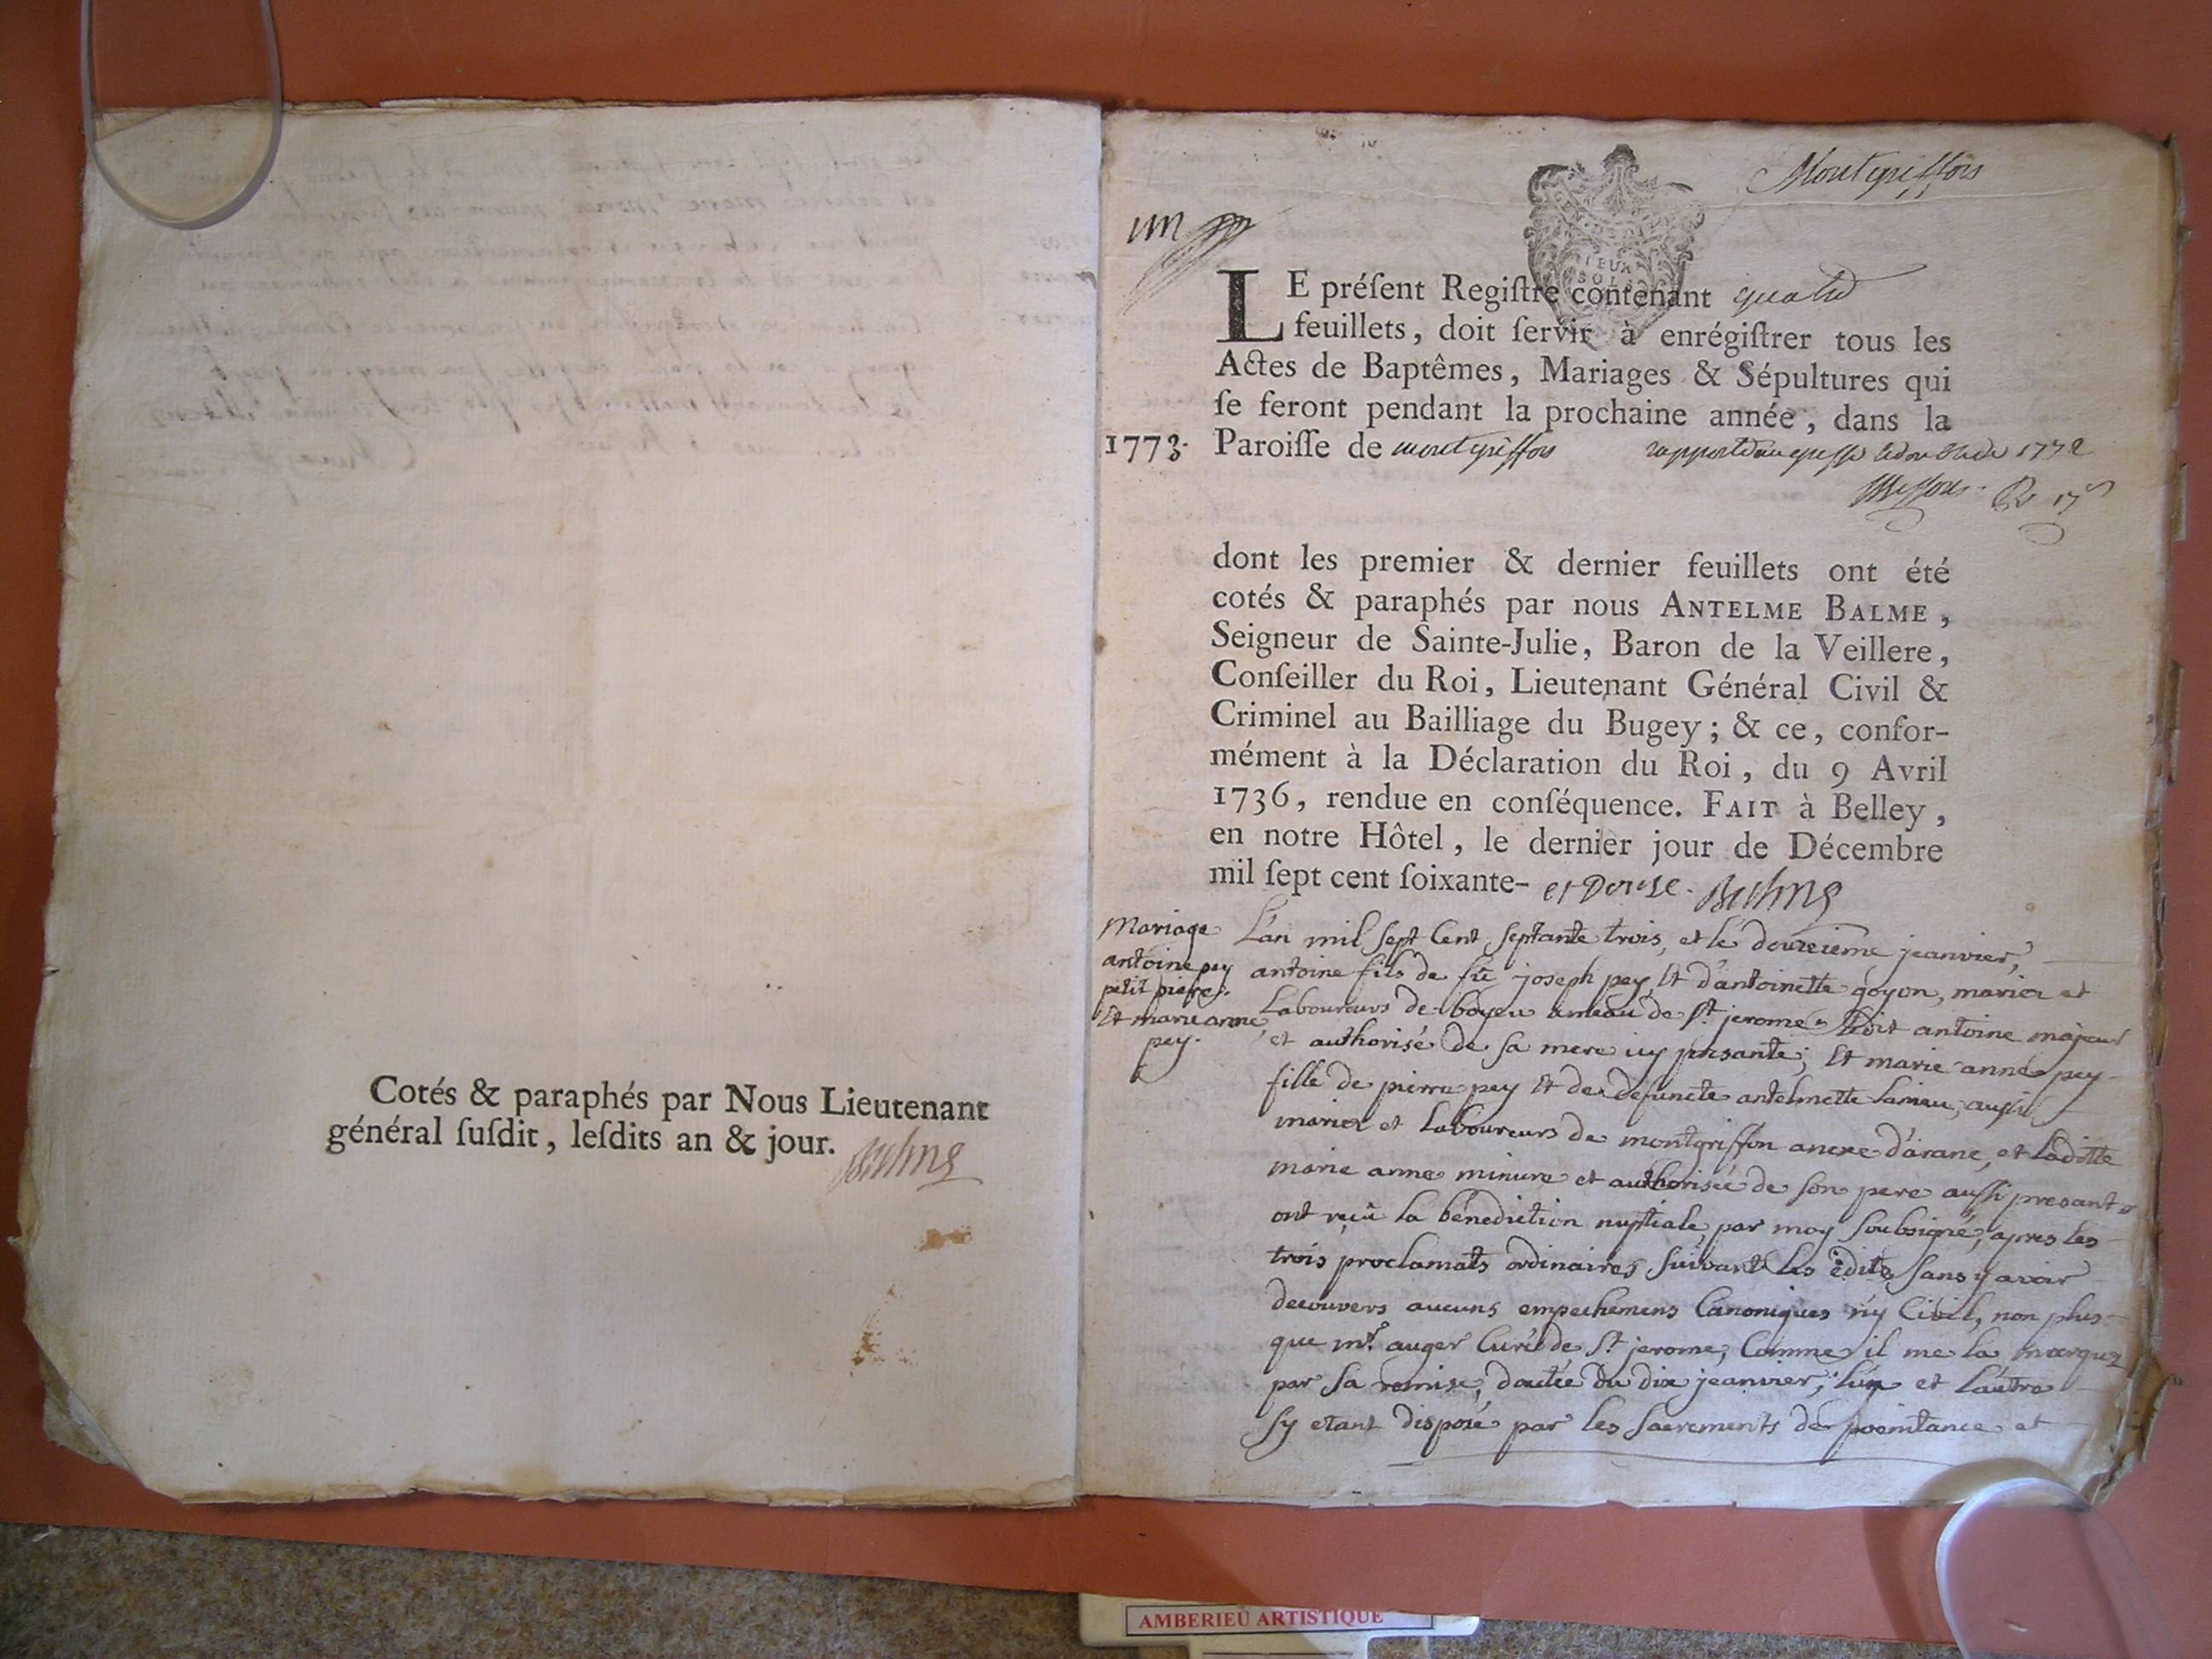 Cotés & paraphés par Nous Lieutenant
général ſuſdit, leſdits an & jour.
Balme
Montgriffon
un
LE préſent Regiſtre contenant quatre
feuillets, doit ſervir à enrégiſtrer tous les
Actes de Baptêmes, Mariages & Sépultures qui
ſe feront pendant la prochaine année, dans la
1773. Paroiſſe de montgriffon rapporté au greffe le double de 1772
dont les premier & dernier feuillets ont été
cotés & paraphés par nous ANTELME BALME,
Seigneur de Sainte-Julie, Baron de la Veillere,
Conſeiller du Roi, Lieutenant Général Civil &
Criminel au Bailliage du Bugey; & ce, confor-
mément à la Déclaration du Roi, du 9 Avril
1736, rendue en conſéquence. FAIT à Belley,
en notre Hôtel, le dernier jour de Décembre
mil ſept cent ſoixante- et Douse. Balme
Mariage
antoine pey
petit pierre.
Et marie anne
pey.
L'an mil sept Cent septante trois, et le douzeieme jeanvier,
antoine fils de fû joseph pey, Et d'antoinette goyon, mariez et
Laboureurs de boyeu ameau de st jerome, ledit antoine majeur
et authorisé de sa mere icy presante; Et marie anne pey
fille de pierre pey Et de defuncte antelmette, aussi
mariez et Laboureurs de montgriffon anexe d'arane, et Laditte
marie anne mineure et authorisée de son pere aussi presant
ont reçû la bénédiction nuptiale, par moy soubsigné, apres les
trois proclamats ordinaires suivant les édits, sans y avoir
decouvers aucuns empechemens Canoniques n'y Civil, non plus
que mr. auger Curé de st jerome, Comme il me la marquez
par sa remise, dautée du dix jeanvier, l'un et l'autre
s'y etant disposé par les sacrements de penitance et
AMBERIEU ARTISTIQUE